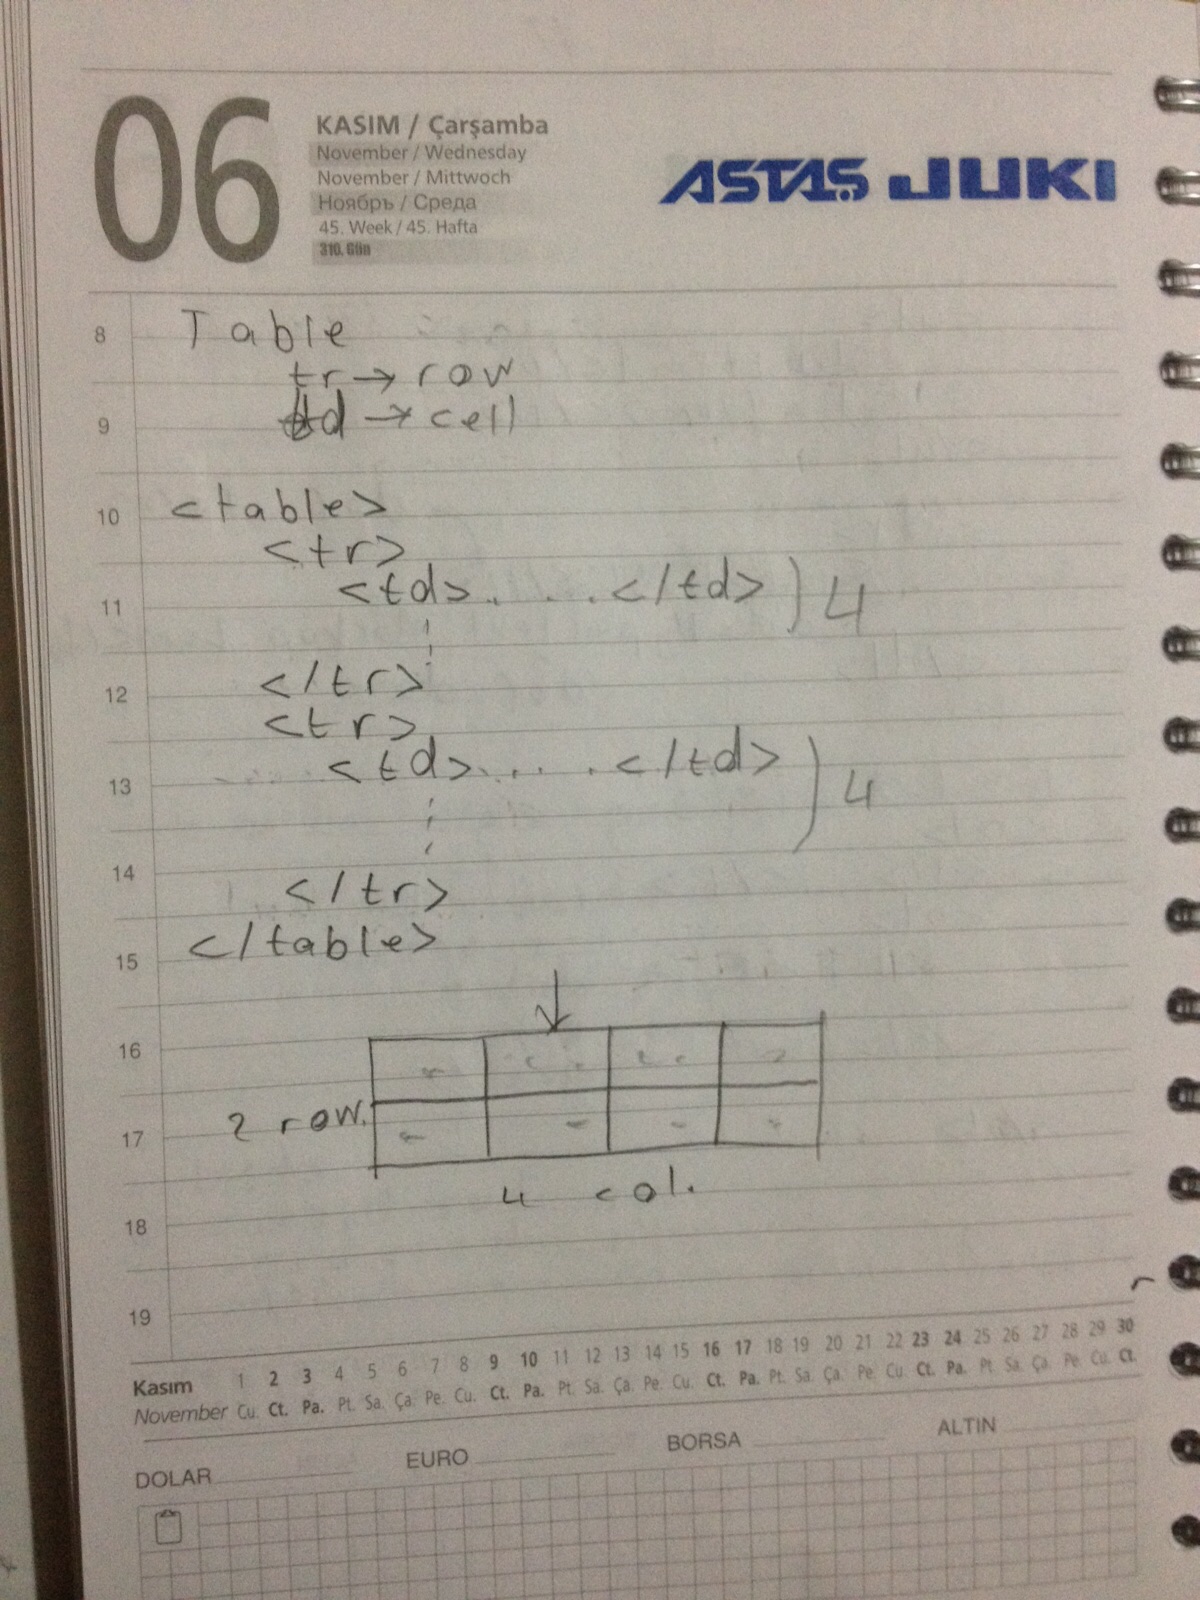 06
KASIM / Çarşamba
November / Wednesday
November / Mittwoch
Ноябрь / Среда
45. Week / 45. Hafta
310. Gün
ASTAŞ JUKI
8
Table
tr → row
9
td → cell
10
<table>
<tr>
11
<td>. . . . </td> ) 4
12
</tr>
<tr>
13
<td>. . . . </td> ) 4
14
</tr>
15
</table>
16
17
2 row.
4 col.
18
19
Kasım 1 2 3 4 5 6 7 8 9 10 11 12 13 14 15 16 17 18 19 20 21 22 23 24 25 26 27 28 29 30
November Cu. Ct. Pa. Pt. Sa. Ça. Pe. Cu. Ct. Pa. Pt. Sa. Ça. Pe. Cu. Ct. Pa. Pt. Sa. Ça. Pe. Cu. Ct. Pa. Pt. Sa. Ça. Pe. Cu. Ct.
DOLAR EURO BORSA ALTIN